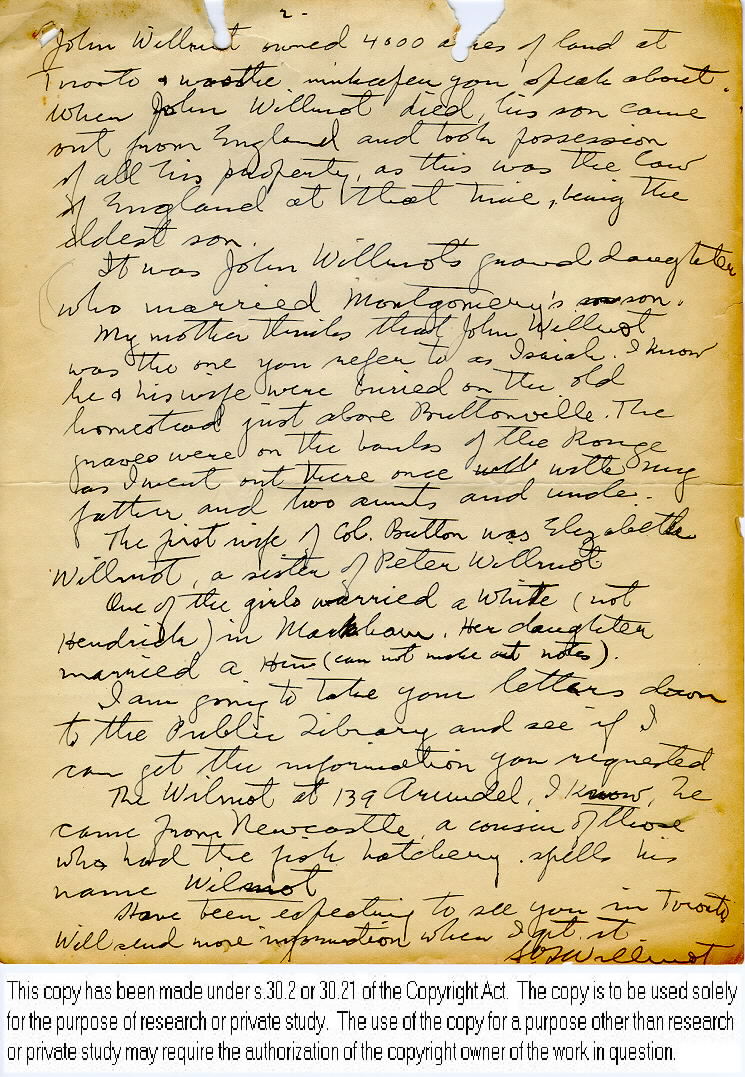 2-
John Willmot owned 4000 acres of land at
Toronto & was the innkeeper you speak about.
When John Willmot died, his son came
out from England and took possession
of all his property, as this was the law
of England at that time, being the
eldest son.
It was John Willmot's grand daughter
(who married Montgomery's son.
My mother thinks that John Willmot
was the one you refer to as Isaiah. I know
he & his wife were buried on the old
homestead just above Buttonville. The
graves were on the banks of the Rouge
as I went out there once with my
father and two aunts and uncle.
The first wife of Col. Button was Elizabeth
Willmot, a sister of Peter Willmot
One of the girls married a White (not
Hendrick) in Markham. Her daughter
married a (can not make out notes).
I am going to take your letters down
to the Public Library and see if I
can get the information you requested
The Wilmot at 139 Arundel, I know, he
came from Newcastle, a cousin of those
who had the fish hatchery. spells his
name Wilmot
Have been expecting to see you in Toronto
Will send more information when I get it
Willmot
This copy has been made under s.30.2 or 30.21 of the Copyright Act. The copy is to be used solely
for the purpose of research or private study. The use of the copy for a purpose other than research
or private study may require the authorization of the copyright owner of the work in question.